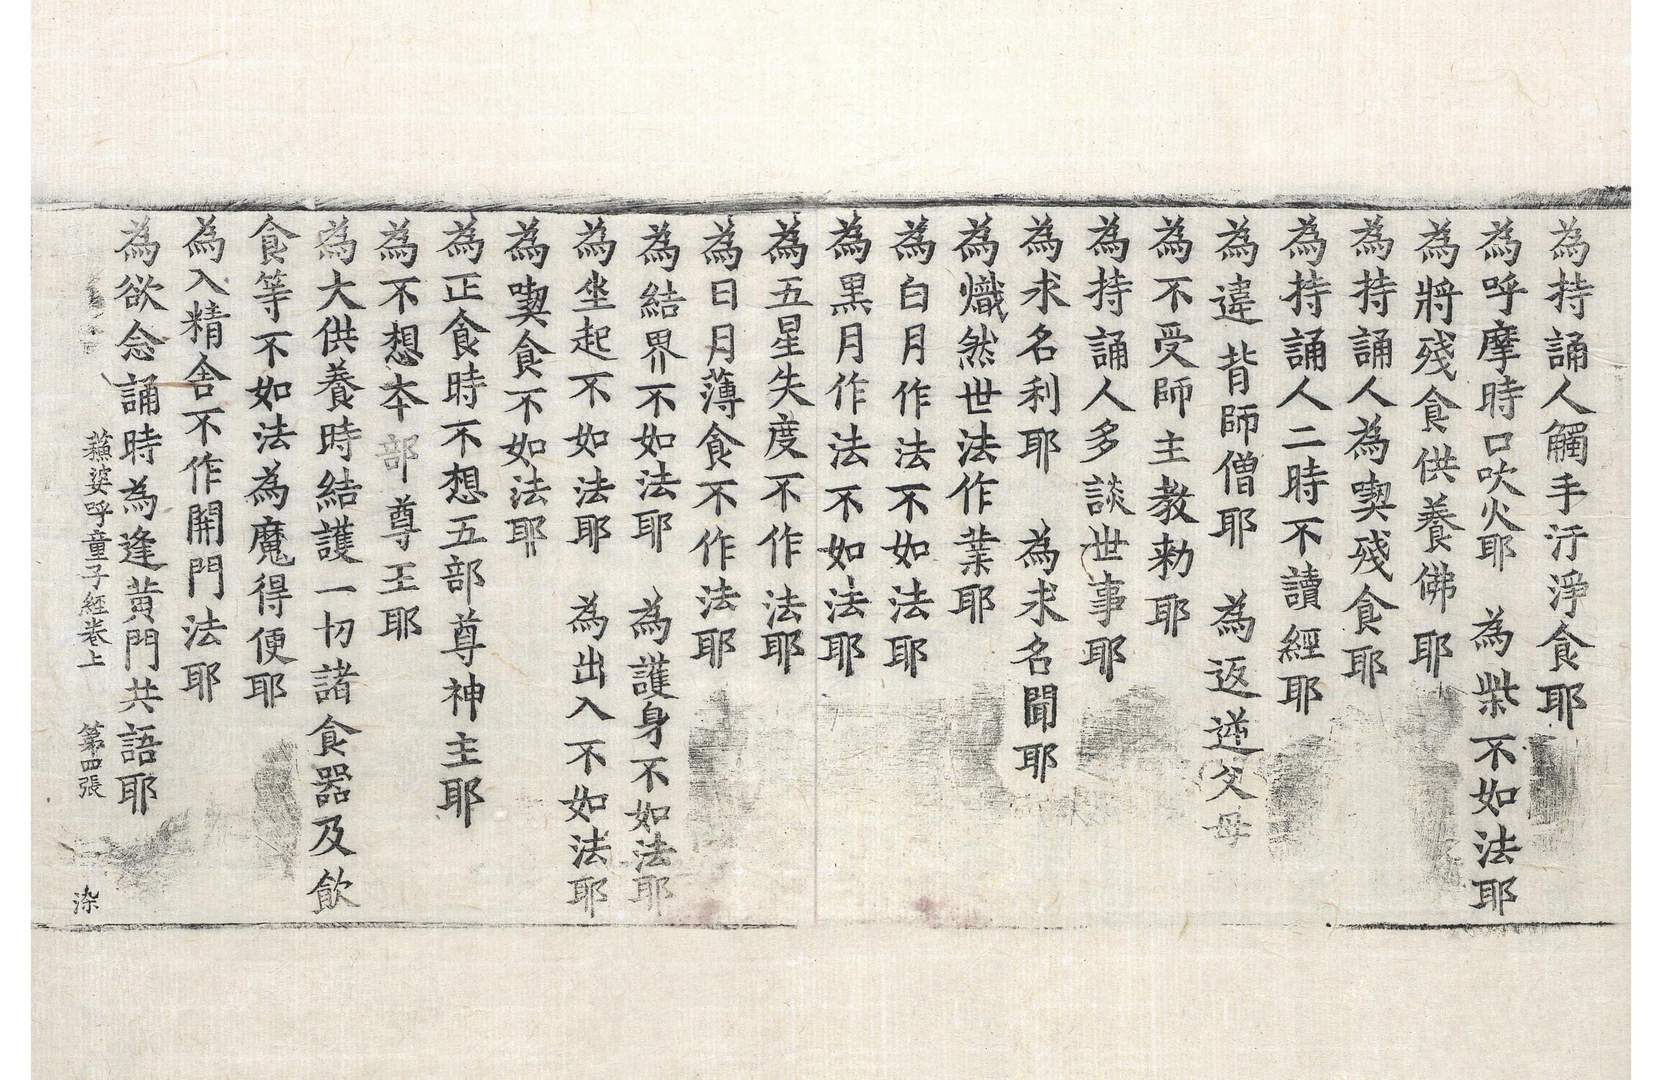 為持誦人觸手汙淨食耶
為呼摩時口吹火耶 為柴不如法耶
為將殘食供養佛耶
為持誦人為喫殘食耶
為持誦人二時不讀經耶
為違背師僧耶 為返逆父母
為不受師主教勑耶
為持誦人多談世事耶
為求名利耶 為求名聞耶
為熾然世法作業耶
為白月作法不如法耶
為黑月作法不如法耶
為五星失度不作法耶
為日月薄食不作法耶
為結界不如法耶 為護身不如法耶
為坐起不如法耶 為出入不如法耶
為喫食不如法耶
為正食時不想五部尊神主耶
為不想本部尊王耶
為大供養時結護一切諸食器及飲
食等不如法為魔得便耶
為入精舍不作開門法耶
為欲念誦時為逢黃門共語耶
蘓婆呼童子經卷上 第四張 染